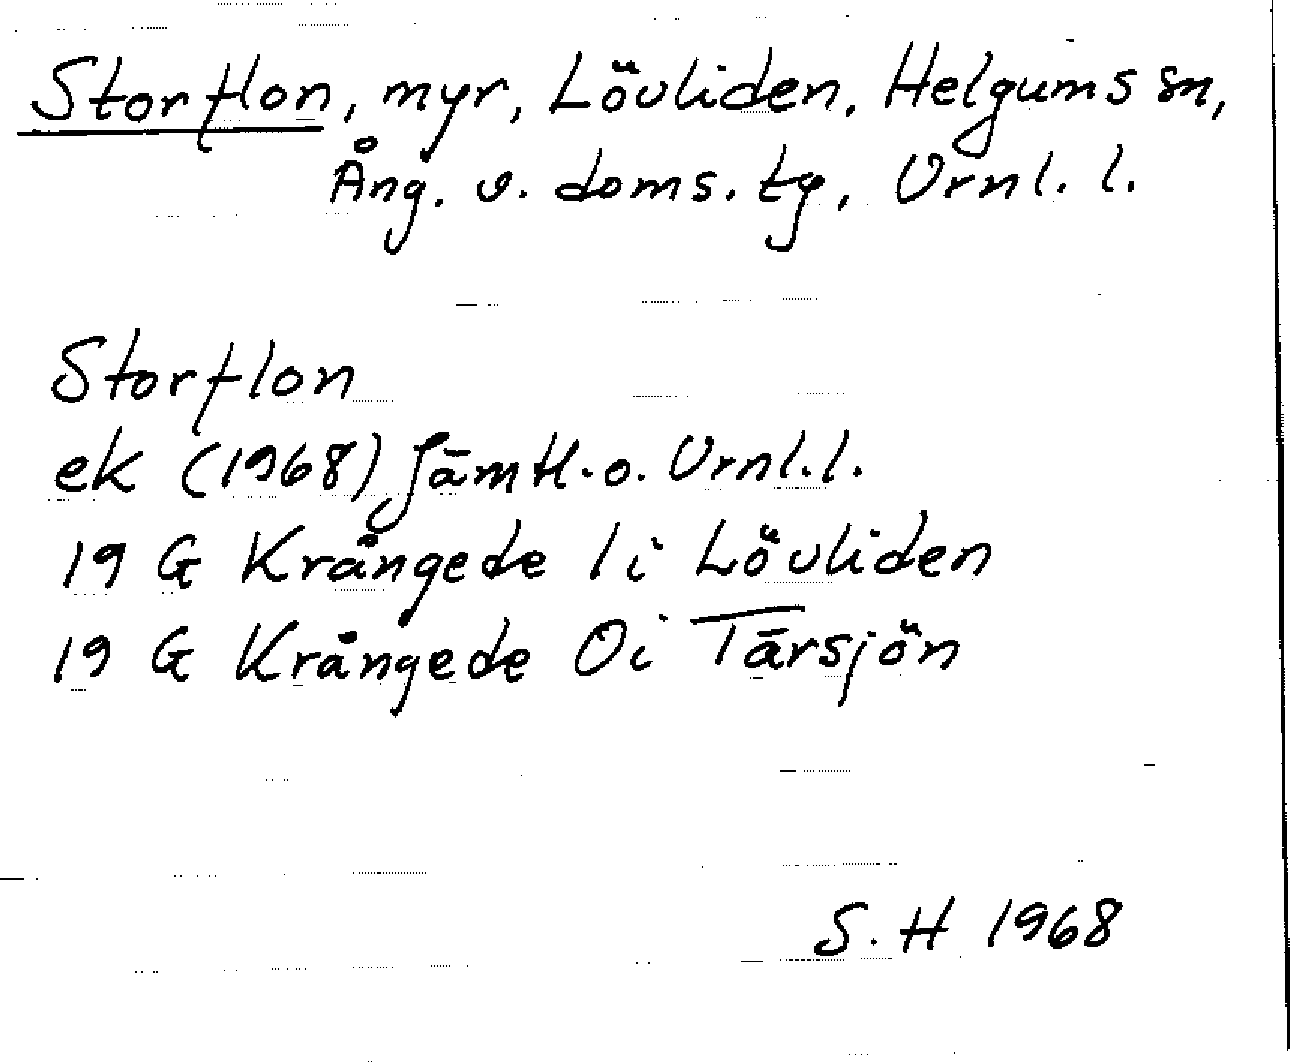 Storflon, myr, Lövliden, Helgums sn,
Ång. v. doms. tg, Vrnl. l.
Storflon
ek (1968) Jämtl. o. Vrnl. l.
19 G Krångede 1 i Lövliden
19 G Krångede 0 i Tärsjön
S. H 1968